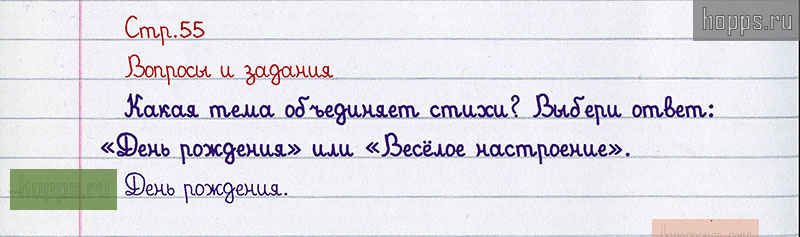 hopps.ru
Стр.55
Вопросы и задания
Какая тема объединяет стихи? Выбери ответ:
«День рождения» или «Весёлое настроение».
hopps.ru
День рождения.
hopps.ru